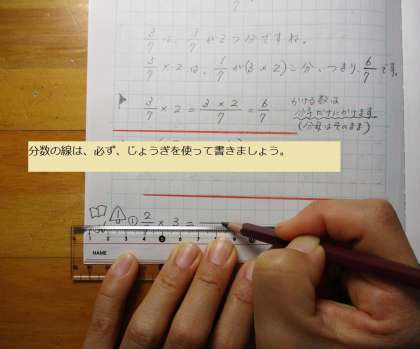 3/7は、1/7が3つ分ですね。
3/7×2は、1/7が(3×2)こ分、つまり、6/7です。
3/7×2=3×2/7=6/7
かける数は
分子だけにかけます
(分母はそのまま)
分数の線は、必ず、じょうぎを使って書きましょう。
① 2/ × 3 =
1 2 3 4 5 6 7 8 9
NAME